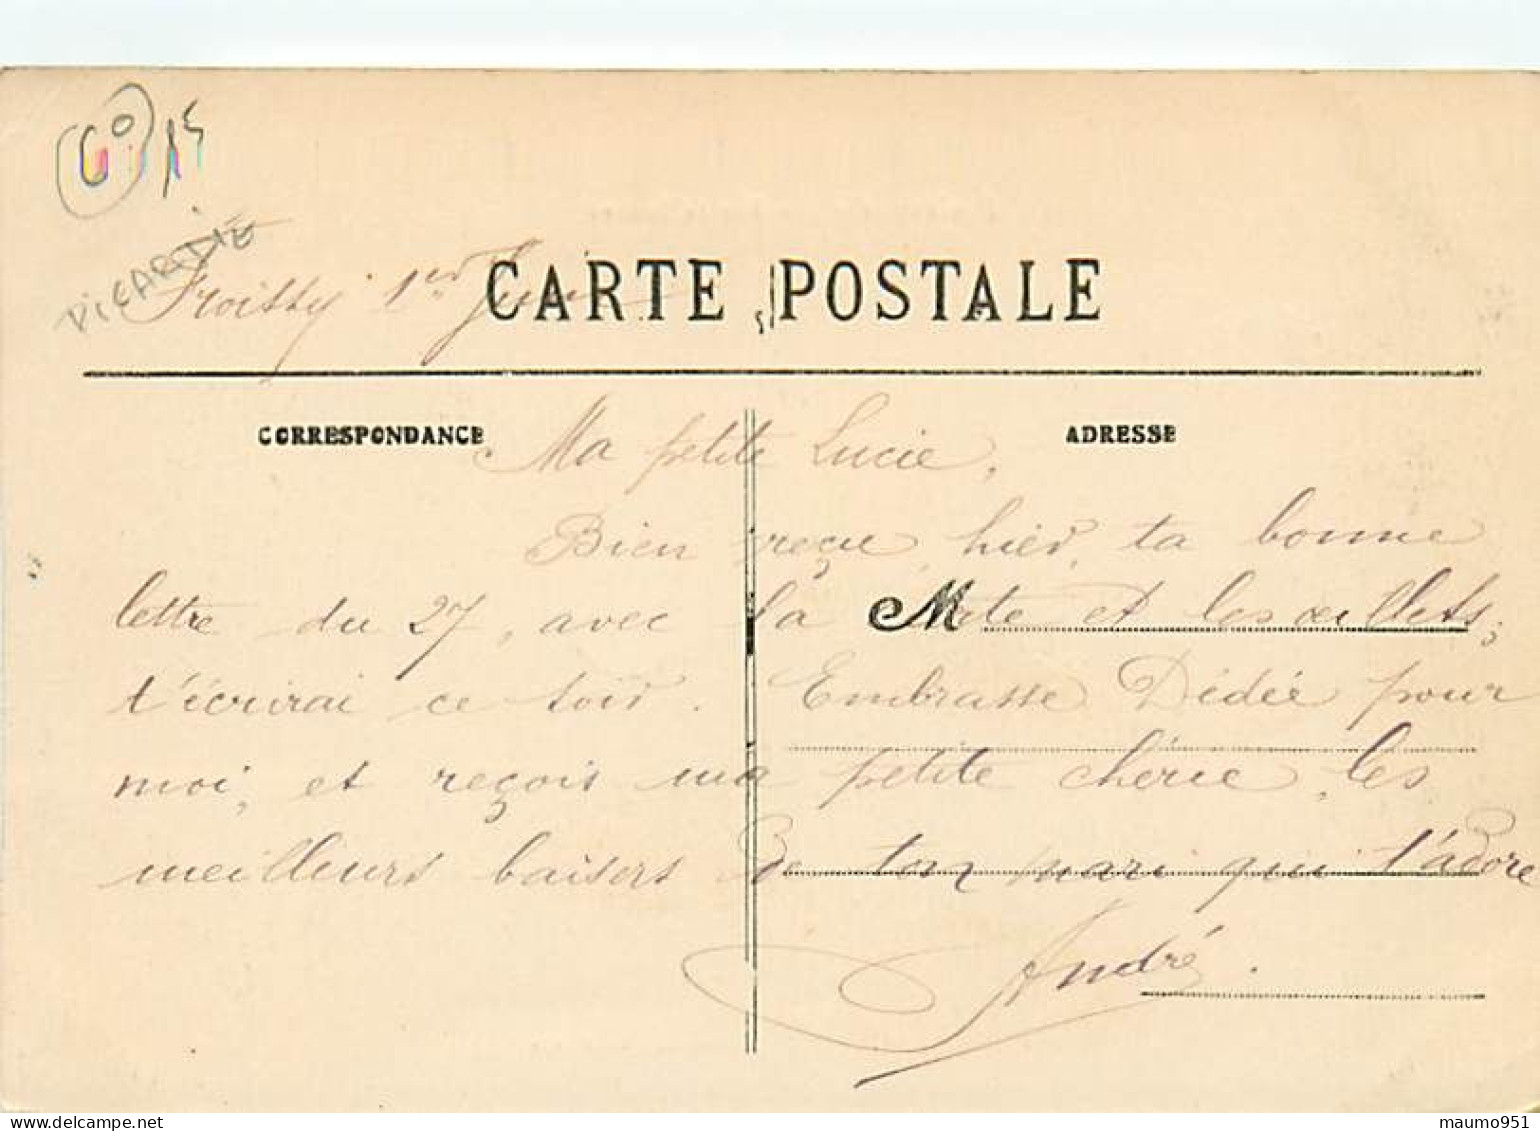 60 15
PICARDIE
Froissy 1er Juin
CARTE POSTALE
CORRESPONDANCE
ADRESSE
Ma petite Lucie,
Bien reçu, hier, ta bonne
lettre du 27, avec la M et les œillets;
t'écrirai ce soir. Embrasse Dédée pour
moi, et reçois ma petite chérie, les
meilleurs baisers de ton mari qui t'adore
André.
maumo951